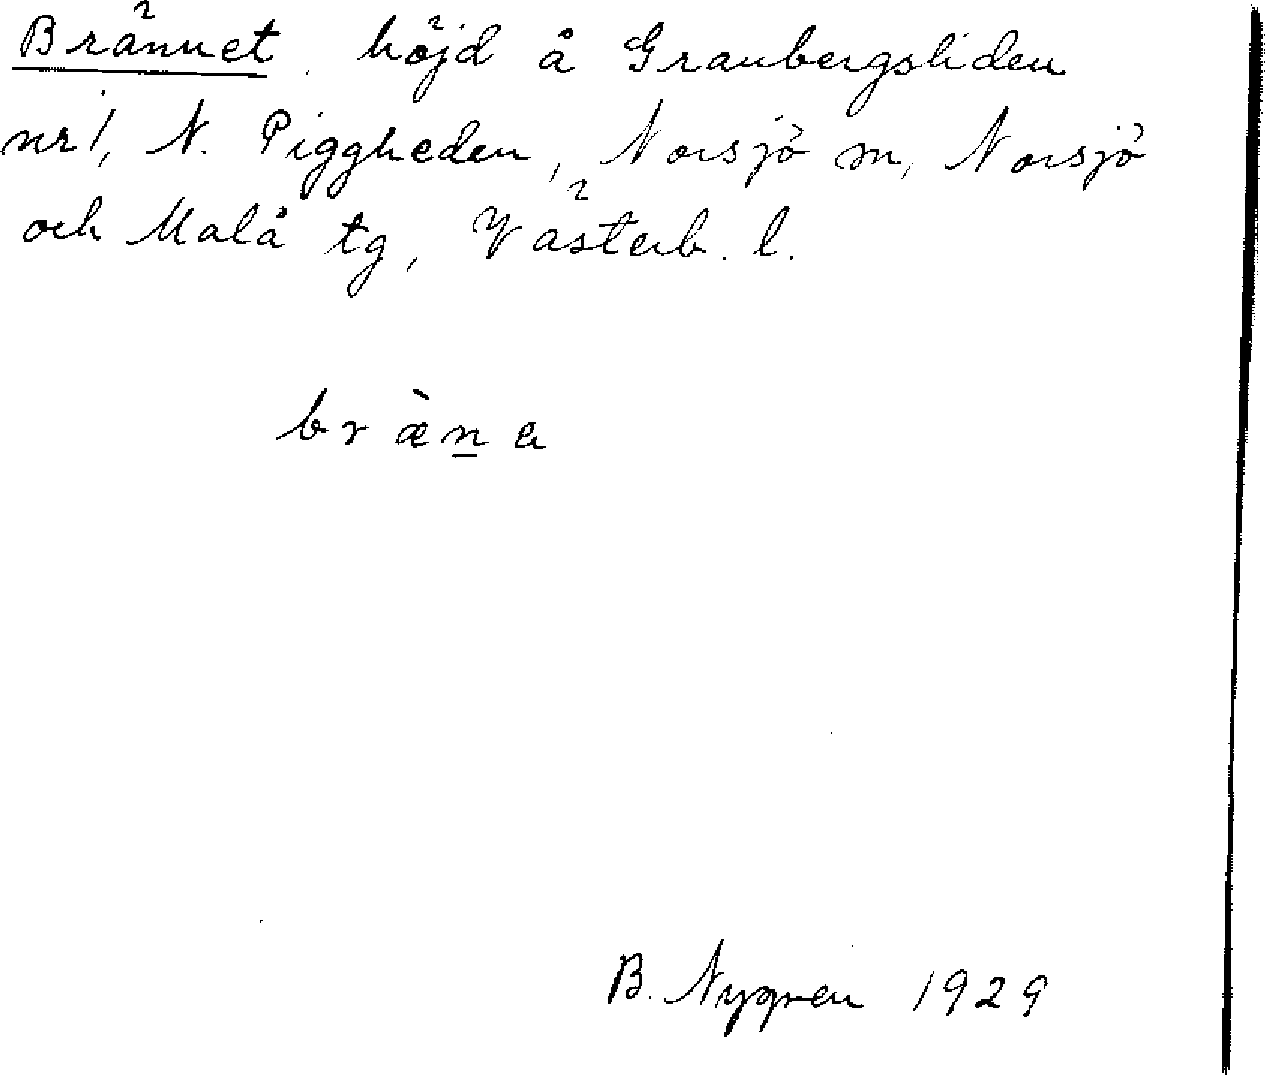 Brännet, höjd å Granbergsliden
nr 1, N. Piggheden, Norsjö m, Norsjö
och Malå tg, Västerb. l.
bræ̀n̲a
B. Nygren 1929